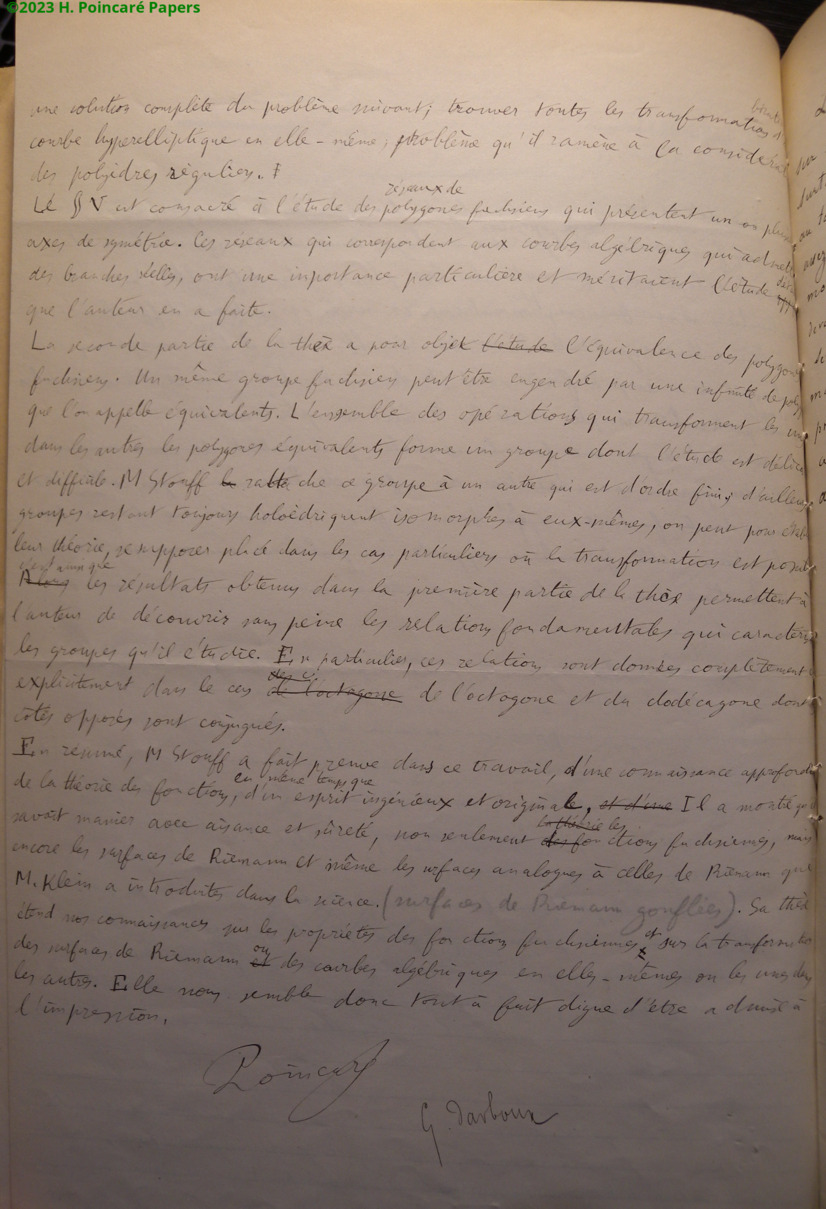 ©2023 H. Poincaré Papers
une solution complète du problème suivant; trouver toutes les transformations
courbe hyperelliptique en elle-même; problème qu'il ramène à la considérat
des polyèdres réguliers.
Le § V est consacré à l'étude des réseaux de polygones fuchsiens qui présentent un ou plus
axes de symétrie. Ces réseaux qui correspondent aux courbes algébriques qui admet
des branches réelles, ont une importance particulière et méritaient l'étude
que l'auteur en a faite.
La seconde partie de la thèse a pour objet l'étude l'équivalence des polygone
fuchsiens. Un même groupe fuchsien peut être engendré par une infinité de poly
que l'on appelle équivalents. L'ensemble des opérations qui transforment les un
dans les autres les polygones équivalents forme un groupe dont l'étude est délica
et difficile. M Stouff le rattache ce groupe à un autre qui est d'ordre fini; d'ailleurs
groupes restant toujours holoédriquent isomorphes à eux-mêmes, on peut pour étab
leur théorie, se supposer placé dans les cas particuliers où la transformation est possib
c'est ainsi que
Alors les résultats obtenus dans la première partie de la thèse permettent à
l'auteur de découvrir sans peine les relations fondamentales qui caractéris
les groupes qu'il étudie. En particulier, ces relations sont données complètement
explicitement dans le cas de l'octogone de l'octogone et du dodécagone dont
côtés opposés sont conjugués.
En résumé, M Stouff a fait preuve dans ce travail, d'une connaissance approfondi
en même temps que
de la théorie des fonctions, d'un esprit ingénieux et original, et d'une Il a montré qu'il
savait manier avec aisance et sûreté, non seulement la théorie les des fonctions fuchsiennes, mais
encore les surfaces de Riemann et même les surfaces analogues à celles de Riemann que
M. Klein a introduites dans la science. (surfaces de Riemann gonflées). Sa thèse
étend nos connaissances sur les propriétés des fonctions fuchsiennes et sur la transformation
des surfaces de Riemann et ou des courbes algébriques en elles-mêmes ou les unes dans
les autres. Elle nous semble donc tout à fait digne d'être admise à
l'impression.
Poincaré
G. Darboux